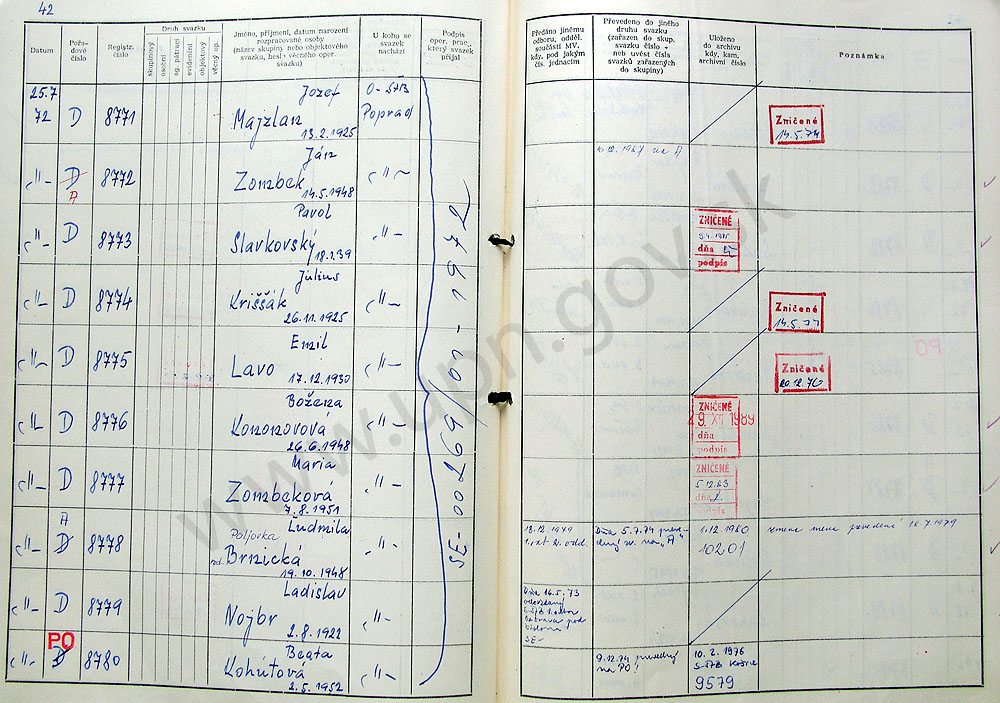 42
Datum
Pořa-
dové
číslo
Registr.
číslo
Druh svazku
skupinový
osobní
ag. pátrací
evidenční
objektový
věcný op.
Jméno, příjmení, datum narození
rozpracované osoby
(název skupiny nebo objektového
svazku, hesl věcného oper.
svazku)
U koho se
svazek
nachází
Podpis
oper. prac.,
který svazek
přijal
Předáno jinému
odboru, odděl.
součásti MV,
kdy, pod jakým
čís. jednacím
Převedeno do jiného
druhu svazku
(zařazen do skup.
svazku číslo -
neb uvést čísla
svazků zařazených
do skupiny)
Uloženo
do archívu
kdy, kam,
archivní číslo
Poznámka
25.7
72 D 8771
Jozef
Majzlan
13.2.1925
O-ŠTB
Poprad
Zničené
14.5.74
-"- D 8772
A
Ján
Zombek
14.5.1948
-"-
-"- D 8773
Pavol
Slavkovský
18.1.39
-"-
ZNIČENÉ
dňa
podpis
-"- D 8774
Július
Kriššák
26.11.1925
-"-
Zničené
14.5.77
-"- D 8775
Emil
Lavo
17.12.1930
-"-
Zničené
20.12.76
-"- D 8776
Božena
Kononovová
26.6.1948
-"-
ZNIČENÉ
29 XI 1989
dňa
podpis
-"- D 8777
Maria
Zombeková
7.8.1951
-"-
ZNIČENÉ
5.12.83
dňa
podpis
A
-"- D 8778
Ľudmila
Poljorka
rod. Brnická
19.10.1948
-"-
13.12.1979
Dňa 5.7.74 preve-
dený zv. na "A"
1.12.1980
10201
-"- D 8779
Ladislav
Nojbr
2.8.1922
-"-
Dňa 16.5.73
PO
-"- D 8780
Beata
Kohútová
2.5.1952
-"-
9.12.74 prevedený
na PO!
10.2.1976
9579
SE-00269/10-1972
www.upn.gov.sk